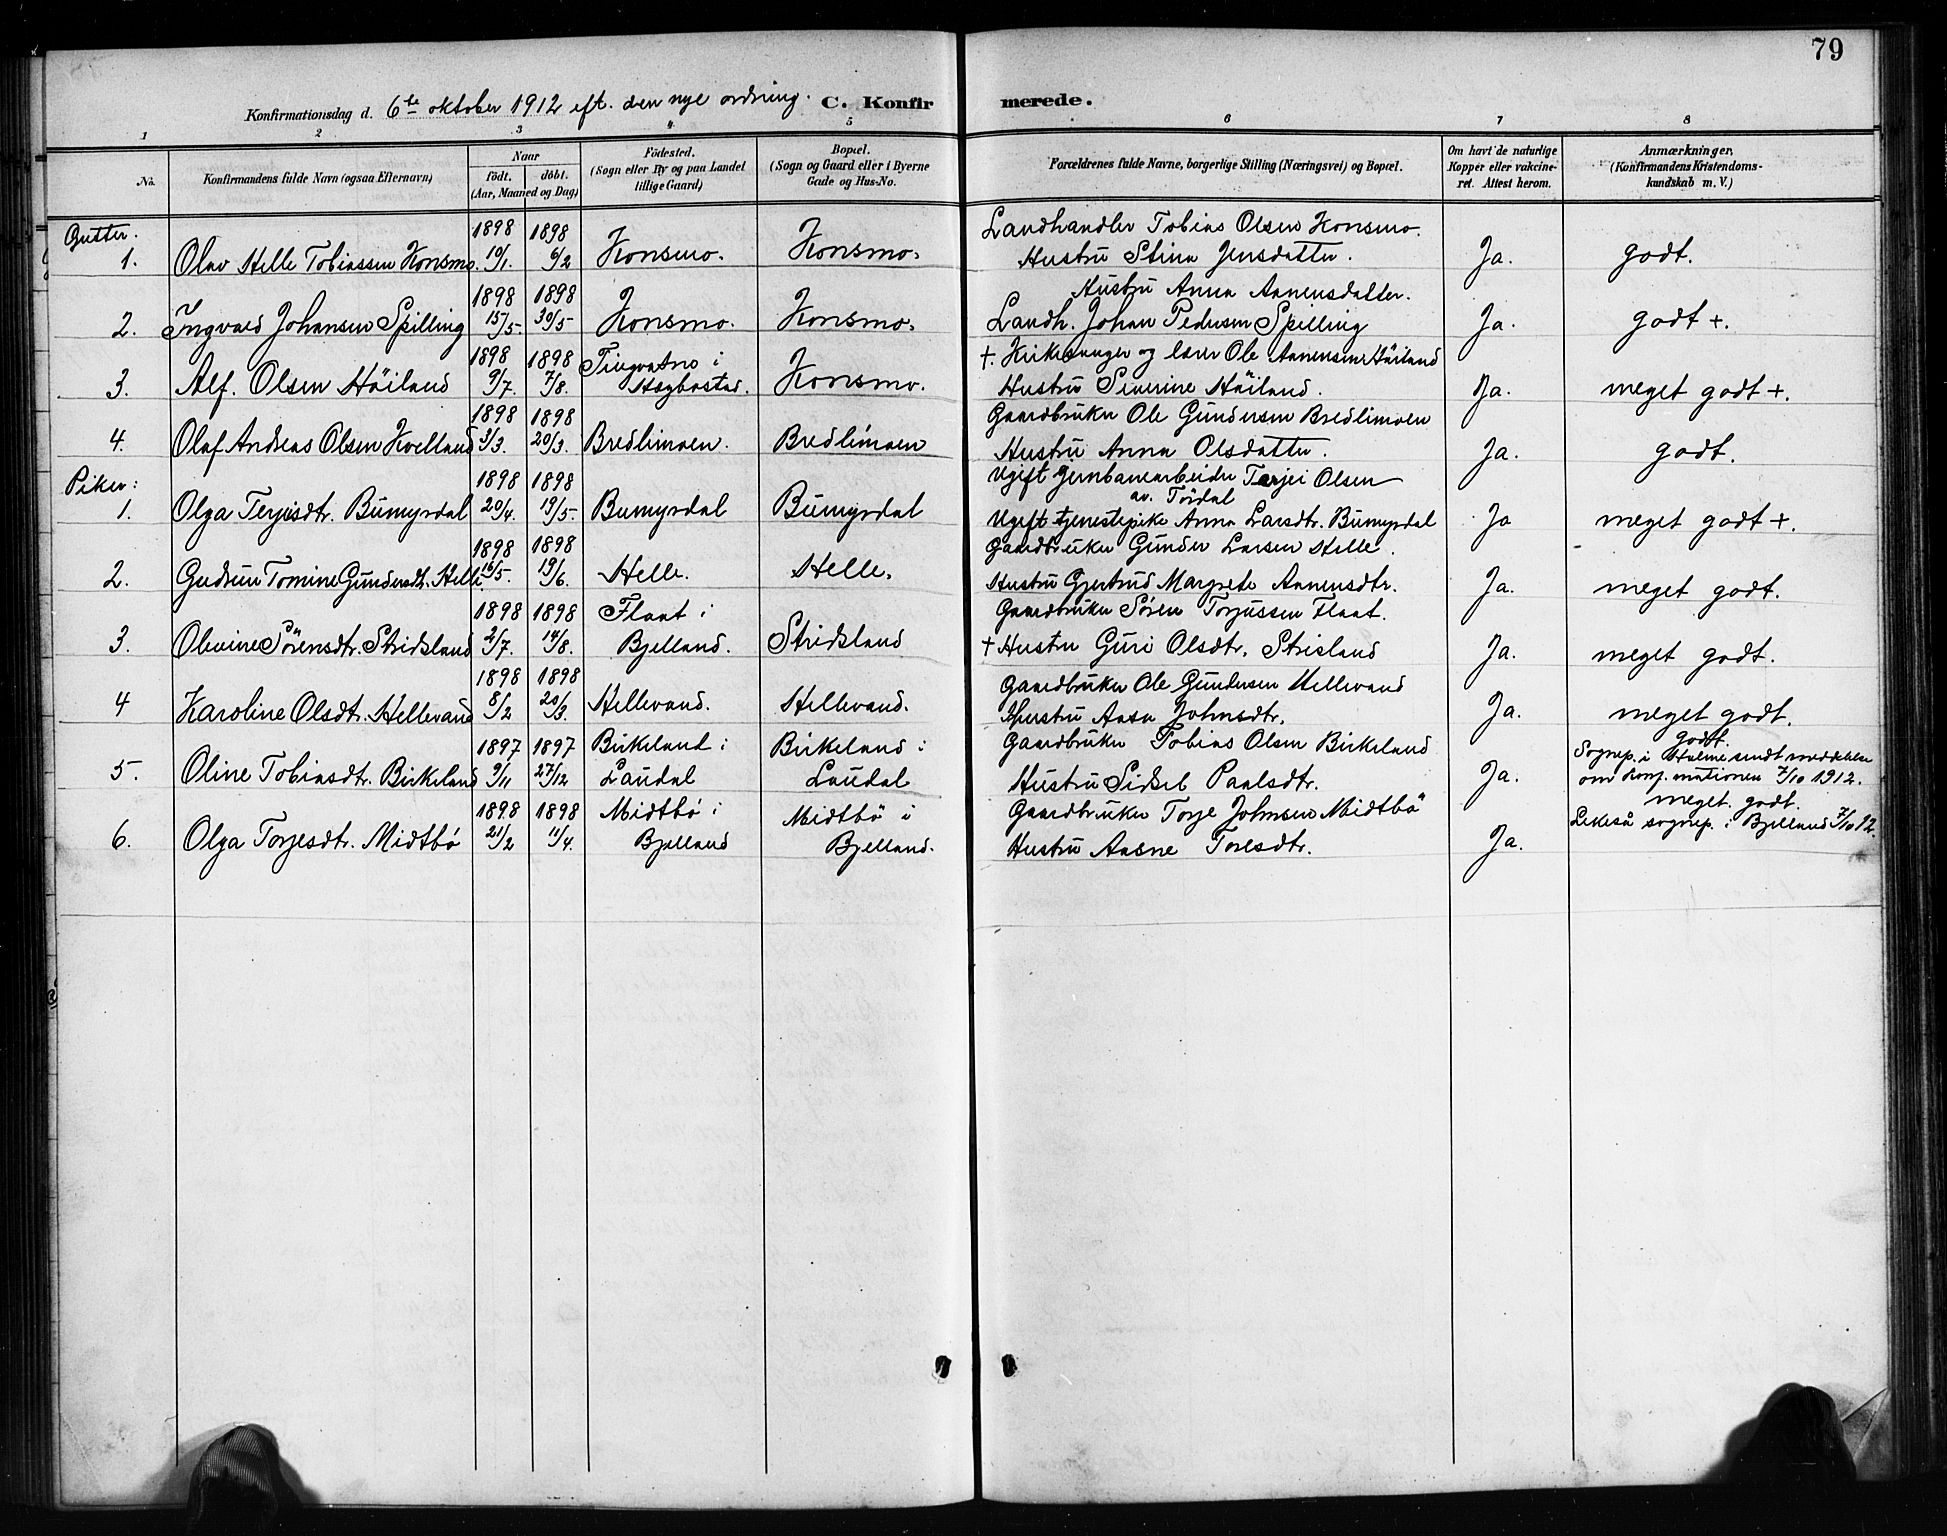 79
Konfirmationsdag d. 6te oktober 1912 eft. den nye ordning. C. Konfirmerede.
1 2 3 4 5 6 7 8
No.
Konfirmandens fulde Navn (ogsaa Efternavn)
Naar
födt. döbt.
(Aar, Maaned og Dag)
Födested.
(Sogn eller By og paa Landet
tillige Gaard)
Bopæl.
(Sogn og Gaard eller i Byerne
Gade og Hus-No.
Forældrenes fulde Navne, borgerlige Stilling (Næringsvei) og Bopæl.
Om havt de naturlige
Kopper eller vakcine-
ret. Attest herom.
Anmærkninger,
(Konfirmandens Kristendoms-
kundskab m. V.)
Gutter.
1. Olav Helle Tobiassen Konsmo. 1898 10/1. 1898 6/2 Konsmo. Konsmo. Landhandler Tobias Olsen Konsmo.
Hustru Stina Jensdatter. Ja. godt.
Hustru Anna Aanensdatter.
2. Ingvald Johansen Spilling 1898 15/5. 1898 30/5 Konsmo. Konsmo. Landh. Johan Pedersen Spilling Ja. godt +.
3. Alf. Olsen Höiland 1898 9/7. 1898 7/8. Tingvatno i
Hægbostad. Konsmo. +. Kirkesanger og lærer Ole Aanensen Höiland
Hustru Severine Höiland. Ja. meget godt +.
4. Olaf Andreas Olsen Kvelland 1898 3/3. 1898 20/3. Bredlimoen. Bredlimoen Gaardbruker Ole Gundersen Bredlimoen
Hustru Anna Olsdatter. Ja. godt.
Piker:
1. Olga Terjesdtr. Bumyrdal 1898 20/4. 1898 19/5. Bumyrdal Bumyrdal Ugift Jernbanearbeider Terjei Olsen
av. Tördal
Ugift tjenestepike Anna Larsdtr. Bumyrdal Ja meget godt +.
2. Gudrun Tomine Gundersdt. Helle. 1898 16/5. 1898 19/6. Helle. Helle. Gaardbruker Gunder Larsen Helle.
Hustru Gjertrud Margrete Aanensdtr. Ja. meget godt.
3. Olevine Sörensdtr. Stridsland 1898 2/7. 1898 14/8. Flaat i
Bjelland. Stridsland Gaardbruker Sören Torjussen Flaat.
+ Hustru Guri Olsdtr. Strisland Ja. meget godt.
4 Karoline Olsdtr. Hellevand 1898 8/2 1898 20/3. Hellevand. Hellevand. Gaardbruker Ole Gundersen Hellevand
Hustru Aasa Johnsdtr. Ja. meget godt.
5. Oline Tobiasdtr. Birkeland 1897 9/11 1897 27/12 Birkeland i
Laudal Birkeland i
Laudal Gaardbruker Tobias Olsen Birkeland
Hustru Sidsel Paalsdtr. Ja. godt.
Sognep. i Holme sendt meddelelse
om konfirmationen 7/10 1912.
6. Olga Torjesdtr. Midtbö 1898 21/2 1898 11/4. Midtbö i
Bjelland Midtbö i
Bjelland. Gaardbruker Torje Johnsen Midtbö
Hustru Aasne Toresdtr. Ja. meget. godt.
sognep. i Bjelland 7/10 12.